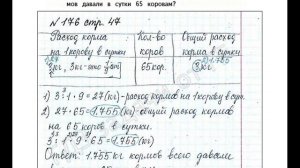 мов давали в сутки 65 коровам?
№ 176 стр. 47
Расход корма на 1 корову в сутки
Кол-во коров
Общий расход корма в сутки
? кг, 3 кг - это 1/9
65 кор.
? кг
1) 3:1·9=27(кг)-расход кормов на 1 корову в сут.
2) 27·65=1.755(кг)-общий расход кормов
на 65 коров в сутки.
3:1·9·65=1.755(кг)
Ответ: 1.755 кг кормов всего давали